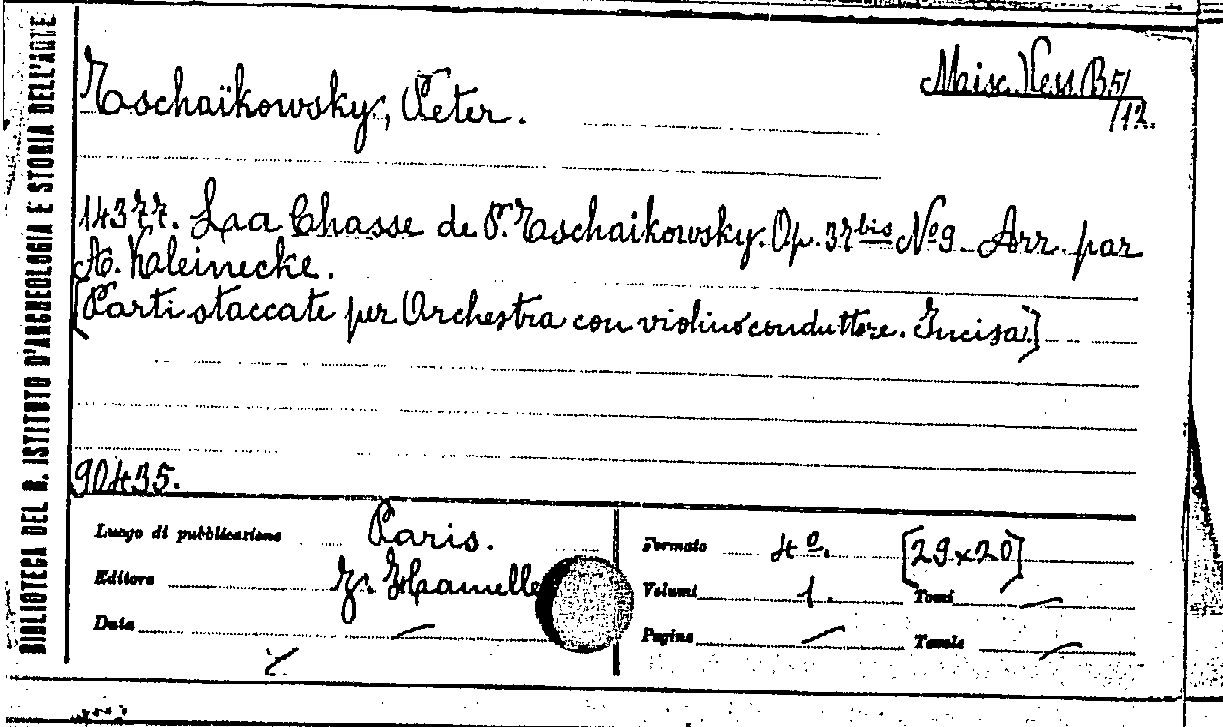 BIBLIOTECA DEL R. ISTITUTO D'ARCHEOLOGIA E STORIA DELL'ARTE
Misc. Vess. B5/
/12.
Tschaïkowsky, Peter.
14377. La Chasse de P. Tschaikowsky. Op. 37 bis Nº 9. Arr. par
A. Kleinecke.
[Parti staccate per Orchestra con violino conduttore. Incisa.]
90435.
Luogo di pubblicazione Paris.
Editore J. Hamelle
Data —
Formato 4º. [29x20]
Volumi 1. Tomi —
Pagine — Tavole —